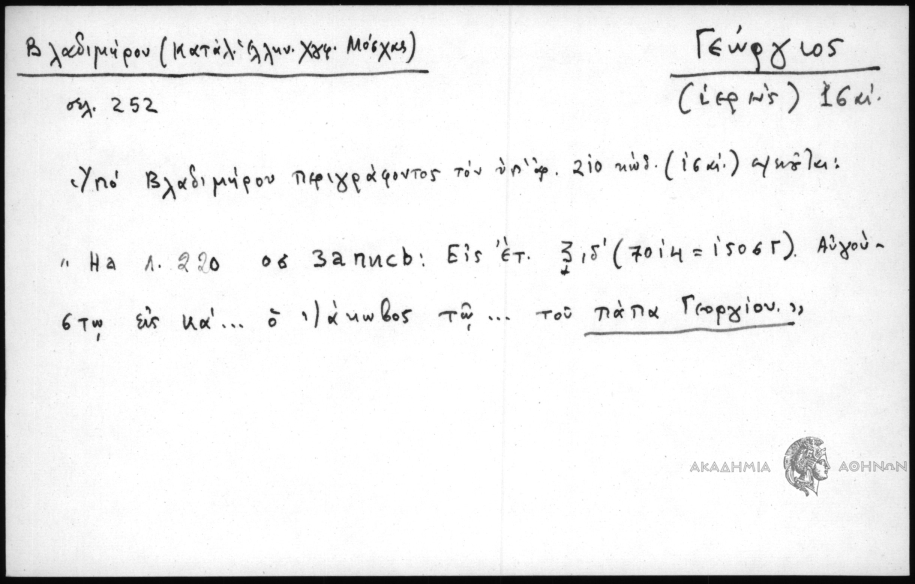 Βλαδιμήρου (Κατάλ. Ἑλλην. Χγφ. Μόσχας)
Γεώργιος
(ἱερεὺς) 16 αἰ.
σελ. 252
Ὑπό Βλαδιμήρου περιγράφοντος τόν ὑπ' ἀρ. 210 κώδ. (16 αἰ.)
„ На л. 220 об Запись: Εἰς ἔτ. ζιδʹ (7014 = 1506 Αὐγού-
στῳ εἰς κά... ὁ Ἰάκωβος τῷ ... τοῦ πάπα Γεοργίου. „
ΑΚΑΔΗΜΙΑ ΑΘΗΝΩΝ